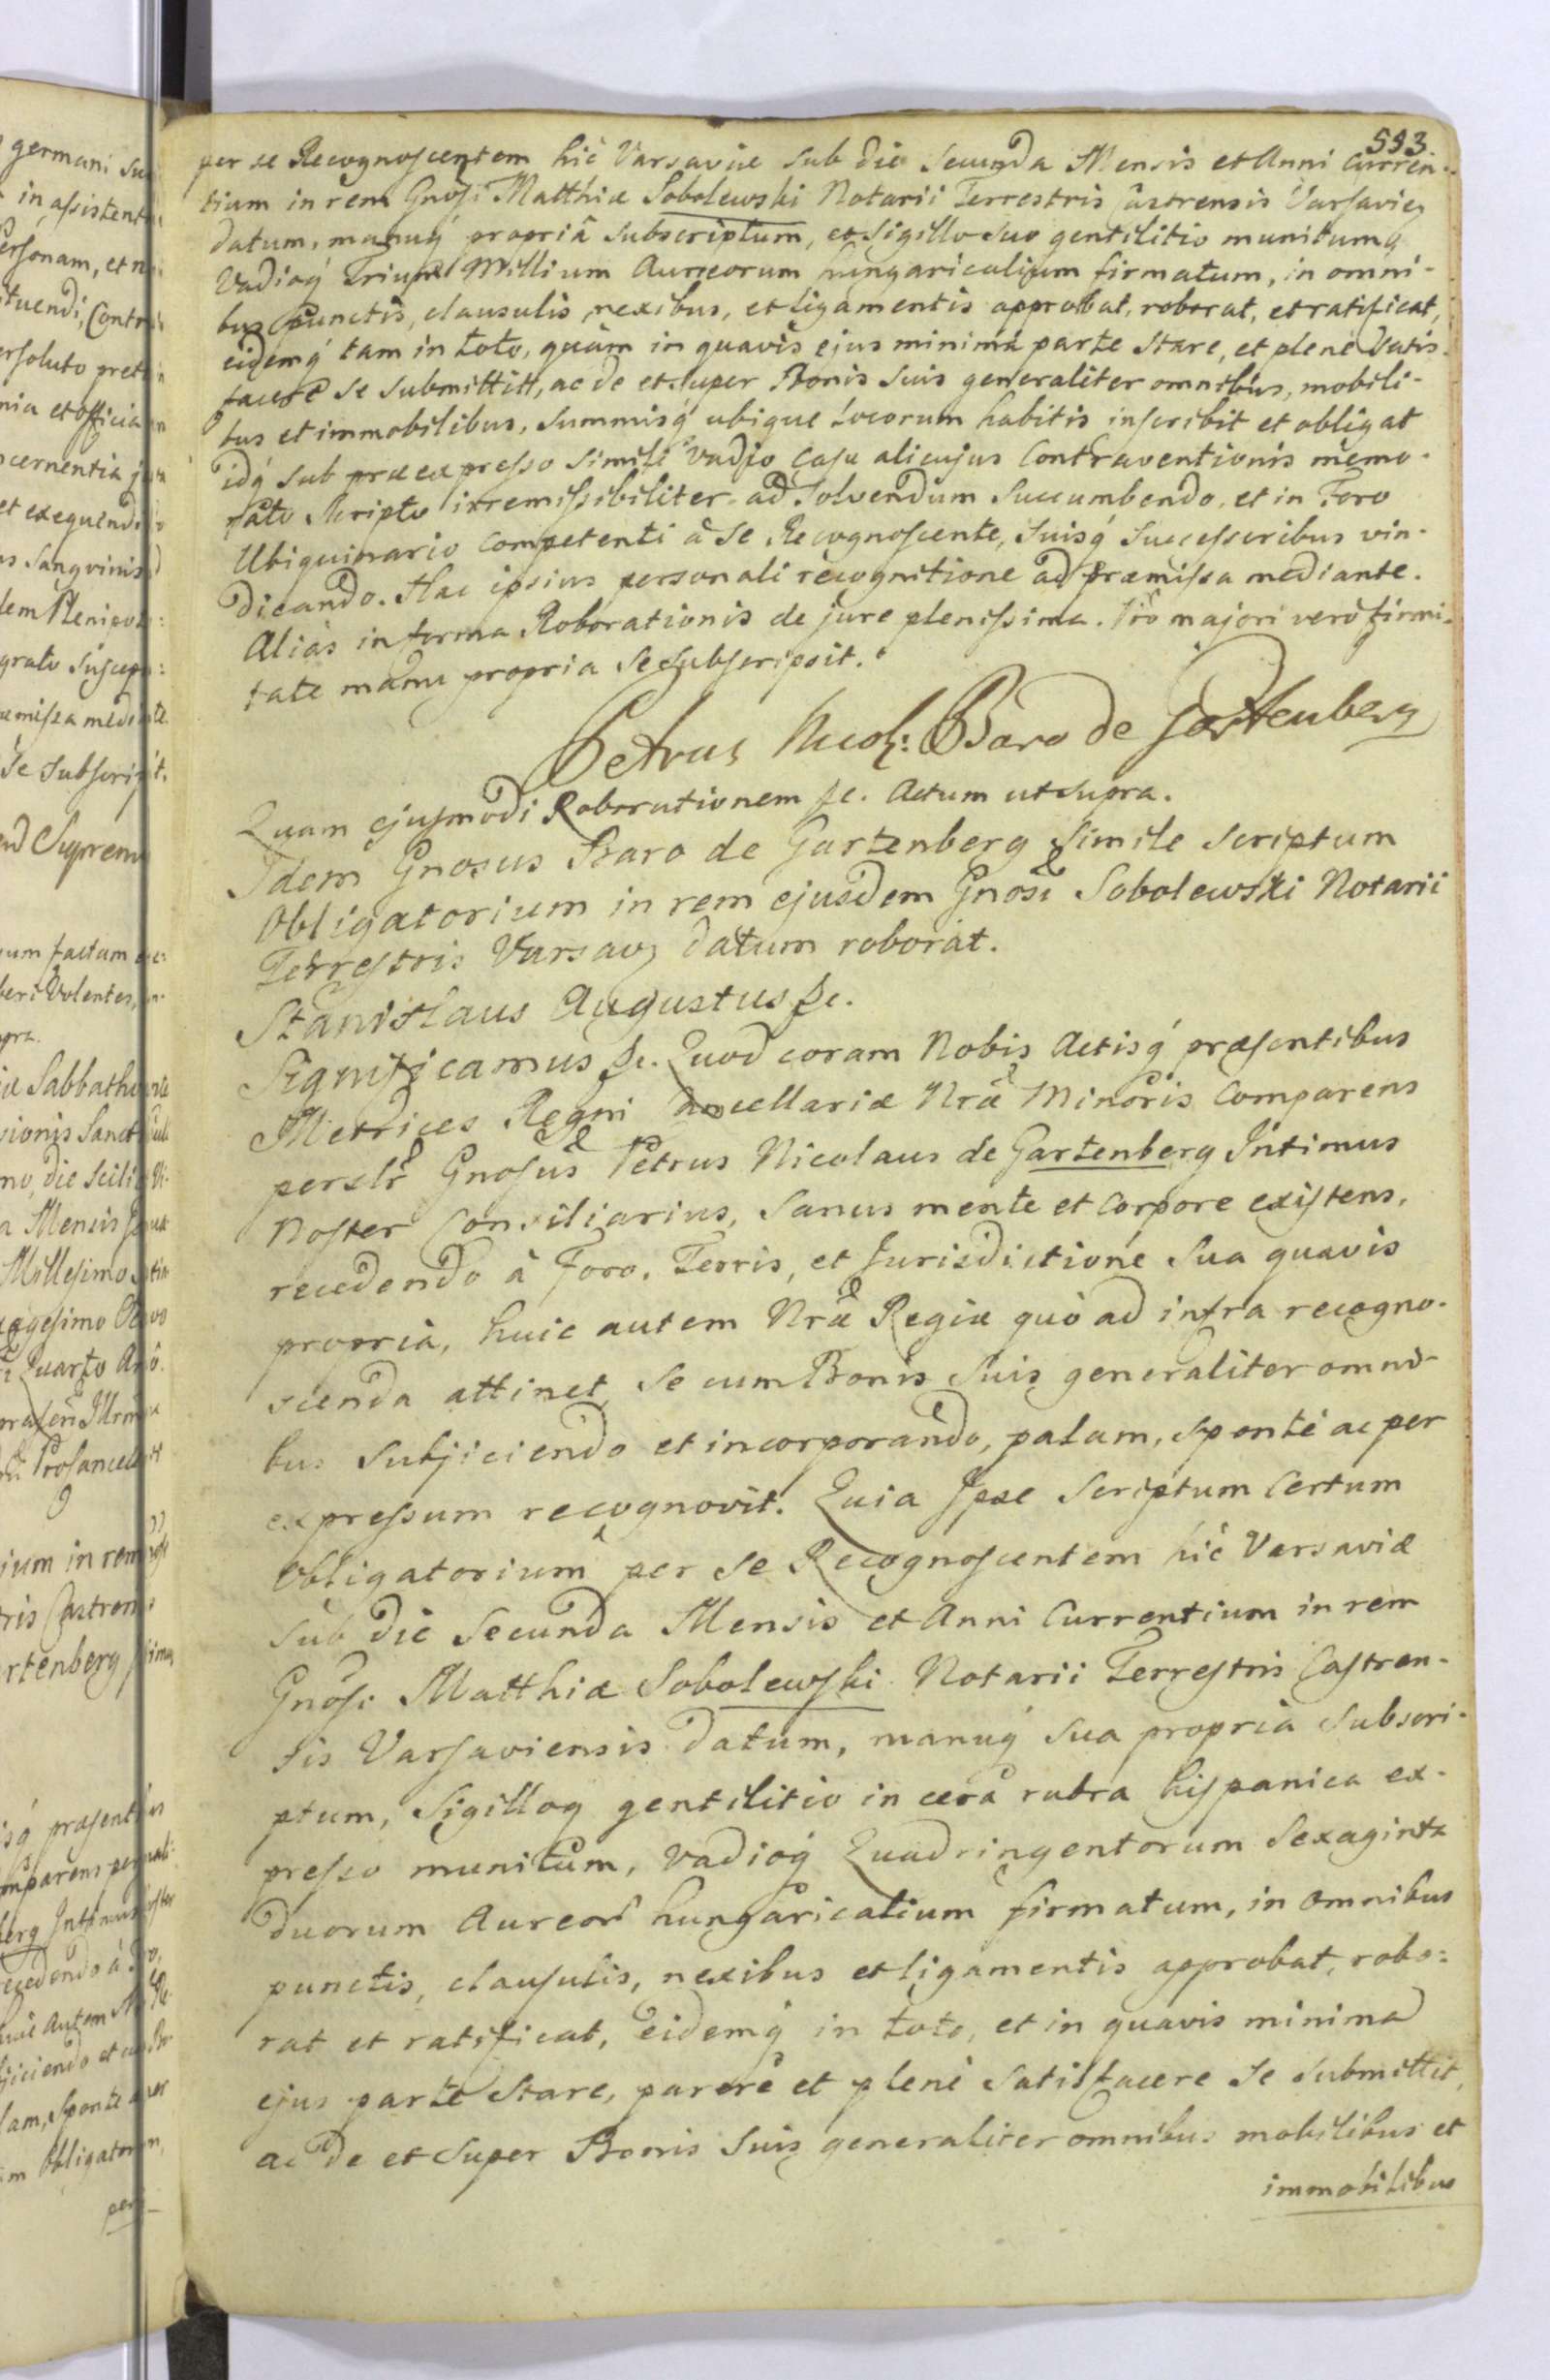 593
per se Recognoscentem hic Varsaviæ sub die Secunda Mensis et Anni Curren-
tium in rem Gnosi Matthiæ Sobolewski Notarii Terrestris Castrensis Varsavien
datum, manuq́ propriâ subscriptum, et Sigillo suo gentilitio munitumq́
Vadioq́ Trium Millium Aureorum hungaricalium firmatum, in omni-
bus punctis, clausulis, nexibus, et ligamentis approbat, roborat, et ratificat,
eidemq́ tam in toto, quàm in quavis ejus minima parte Stare, et plenè Satis-
facere se submittitt, ac de et super Bonis suis generaliter omnibus, mobili-
bus et immobilibus, summisq́ ubique locorum habitis inscribit et obligat
idq́ sub præexpresso simili vadio casu alicujus Contraventionis memo-
rato Scripto irremissibiliter ad Solvendum Succumbendo, et in Foro
Ubiquinario Competenti à se Recognoscente, Suisq́ Successoribus vin-
dicando. Hac ipsius personali recognitione ad præmissa mediante.
Aliàs in forma Roborationis de jure plenissima. Pro majori verò firmi-
tate manu propria se subscripsit.
Petrus Nicol: Baro de Gartenberg
Quam ejusmodi Roborationem &c. Actum ut supra.
Idem Gnosus Baro de Gartenberg Simile Scriptum
Obligatorium in rem ejusdem Gnosi Sobolewski Notarii
Terrestris Varsav datum roborat.
Stanislaus Augustus &c.
Significamus &c. Quod coram Nobis Actisq́ præsentibus
Metrices Regni Cancellariæ Nræ Minoris Comparens
perslr Gnosus Petrus Nicolaus de Gartenberg Intimus
Noster Consiliarius, Sanus mente et Corpore existens,
recedendo à Foro, Terris, et Jurisdictione Sua quavis
propria, huic autem Nræ Regiæ quò ad infra recogno-
scenda attinet, se cum Bonis suis generaliter omni-
bus Subjiciendo et incorporando, palam, sponte ac per
expressum recognovit. Quia Ipse Scriptum Certum
Obligatorium per se Recognoscentem hic Varsaviæ
Sub die Secunda Mensis et Anni Currentium in rem
Gnosi Matthiæ Sobolewski Notarii Terrestris Castren-
sis Varsaviensis datum, manuq́ sua propria subscri-
ptum, Sigilloq gentilitio in cera rubra hispanica ex-
presso munitum, vadioq́ Quadringentorum Sexaginta
duorum Aureor hungaricalium firmatum, in omnibus
punctis, clausulis, nexibus et ligamentis approbat, robo-
rat et ratificat, Eidemq́ in toto, et in quavis minima
ejus parte Stare, parere et plenè Satisfacere se submittit,
ac de et super Bonis suis generaliter omnibus mobilibus et
immobilibus